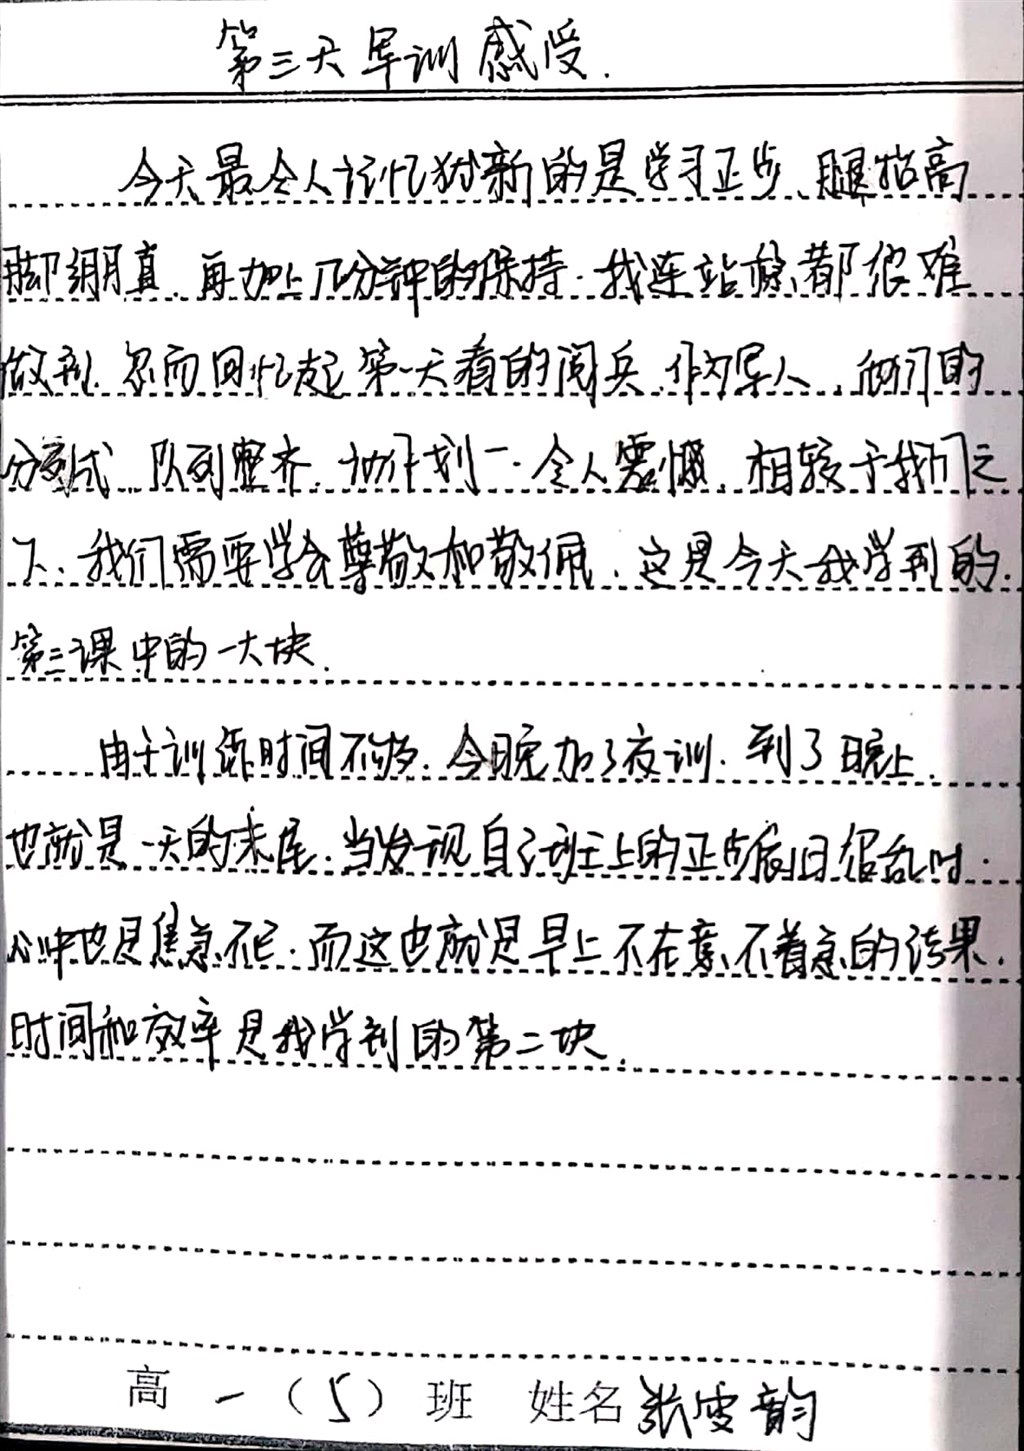 第三天军训感受.
今天最令人记忆犹新的是学习正步、腿抬高
脚绷直、再加上几分钟的保持.我连站稳都很难
做到.忽而回忆起第一天看的阅兵.作为军人,他们的
分列式、队列整齐.协作划一.令人震慑.相较于我们之
下.我们需要学会尊敬和敬佩、这是今天我学到的.
第三课中的一大块.
由于训练时间不够.今晚加了夜训.到了晚上.
也就是一天的末尾.当发现自己班上的正步依旧很乱时.
心中也是焦急不已.而这也就是早上不在意不着急的结果.
时间和效率是我学到的第二块.
高一(5)班 姓名张雯韵